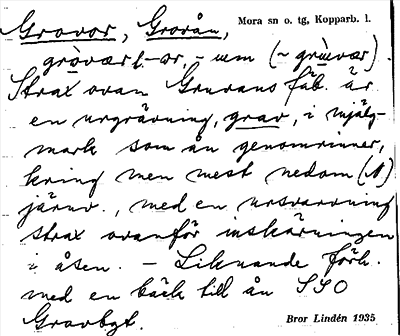 Gravor, Gravån, Mora sn o. tg, Kopparb. l.
grövar[-or, -um (~ grùvar)
Strax ovan Gruvans fäb. är
en urgrävning, grav, i mjäl-
mark som ån genomrinner,
kring men mest nedom (N)
järnv., med en ursvarvning
strax ovanför inskärningen
i åsen. – Liknande förh.
med en bäck till ån SSO
Gravbgt.
Bror Lindén 1935